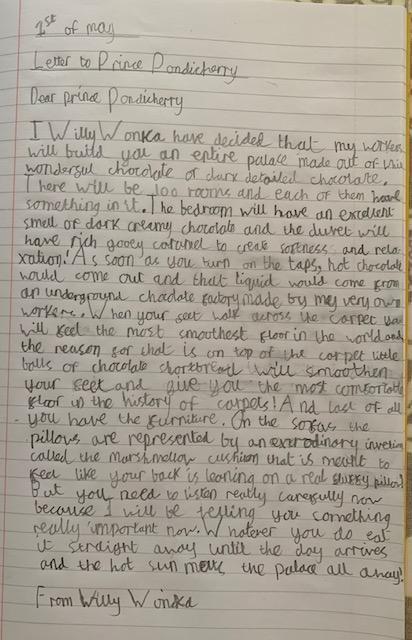 1st of may
Letter to Prince Pondicherry
Dear prince Pondicherry
I Willy Wonka have decided that my workers
will build you an entire palace made out of this
wonderful chocolate of dark detailed chocolate.
There will be 100 rooms and each of them have
something in it. The bedroom will have an excellent
smell of dark creamy chocolate and the duvet will
have rich gooey caramel to create softness and rela-
xation! As soon as you turn on the taps, hot chocolate
would come out and that liquid would come from
an underground chocolate factory made by my very own
workers. When your feet walk across the carpet you
will feel the most smoothest floor in the world and
the reason for that is on top of the carpet little
balls of chocolate shortbread will smoothen
your feet and give you the most comfortable
floor in the history of carpets! And last of all
you have the furniture. On the sofas the
pillows are represented by an extrodinary invetion
called the marshmellow cushion that is meant to
feel like your back is leaning on a real pillow!
But you need to listen really carefully now
because I will be telling you something
really important now. Whatever you do eat
it straight away until the day arrives
and the hot sun melts the palace all away!
From Willy Wonka